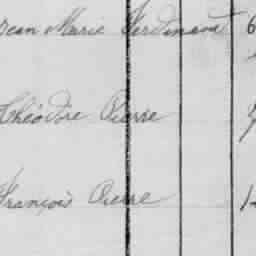 Jean Marie Ferdinand 6
Théodore Pierre
François Pierre